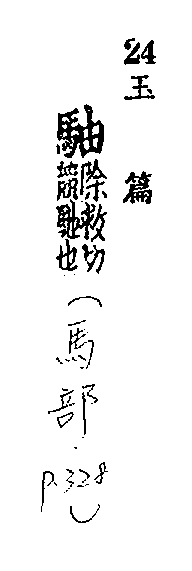 24玉篇
駎除救切
競馳也
(馬部.p.328)